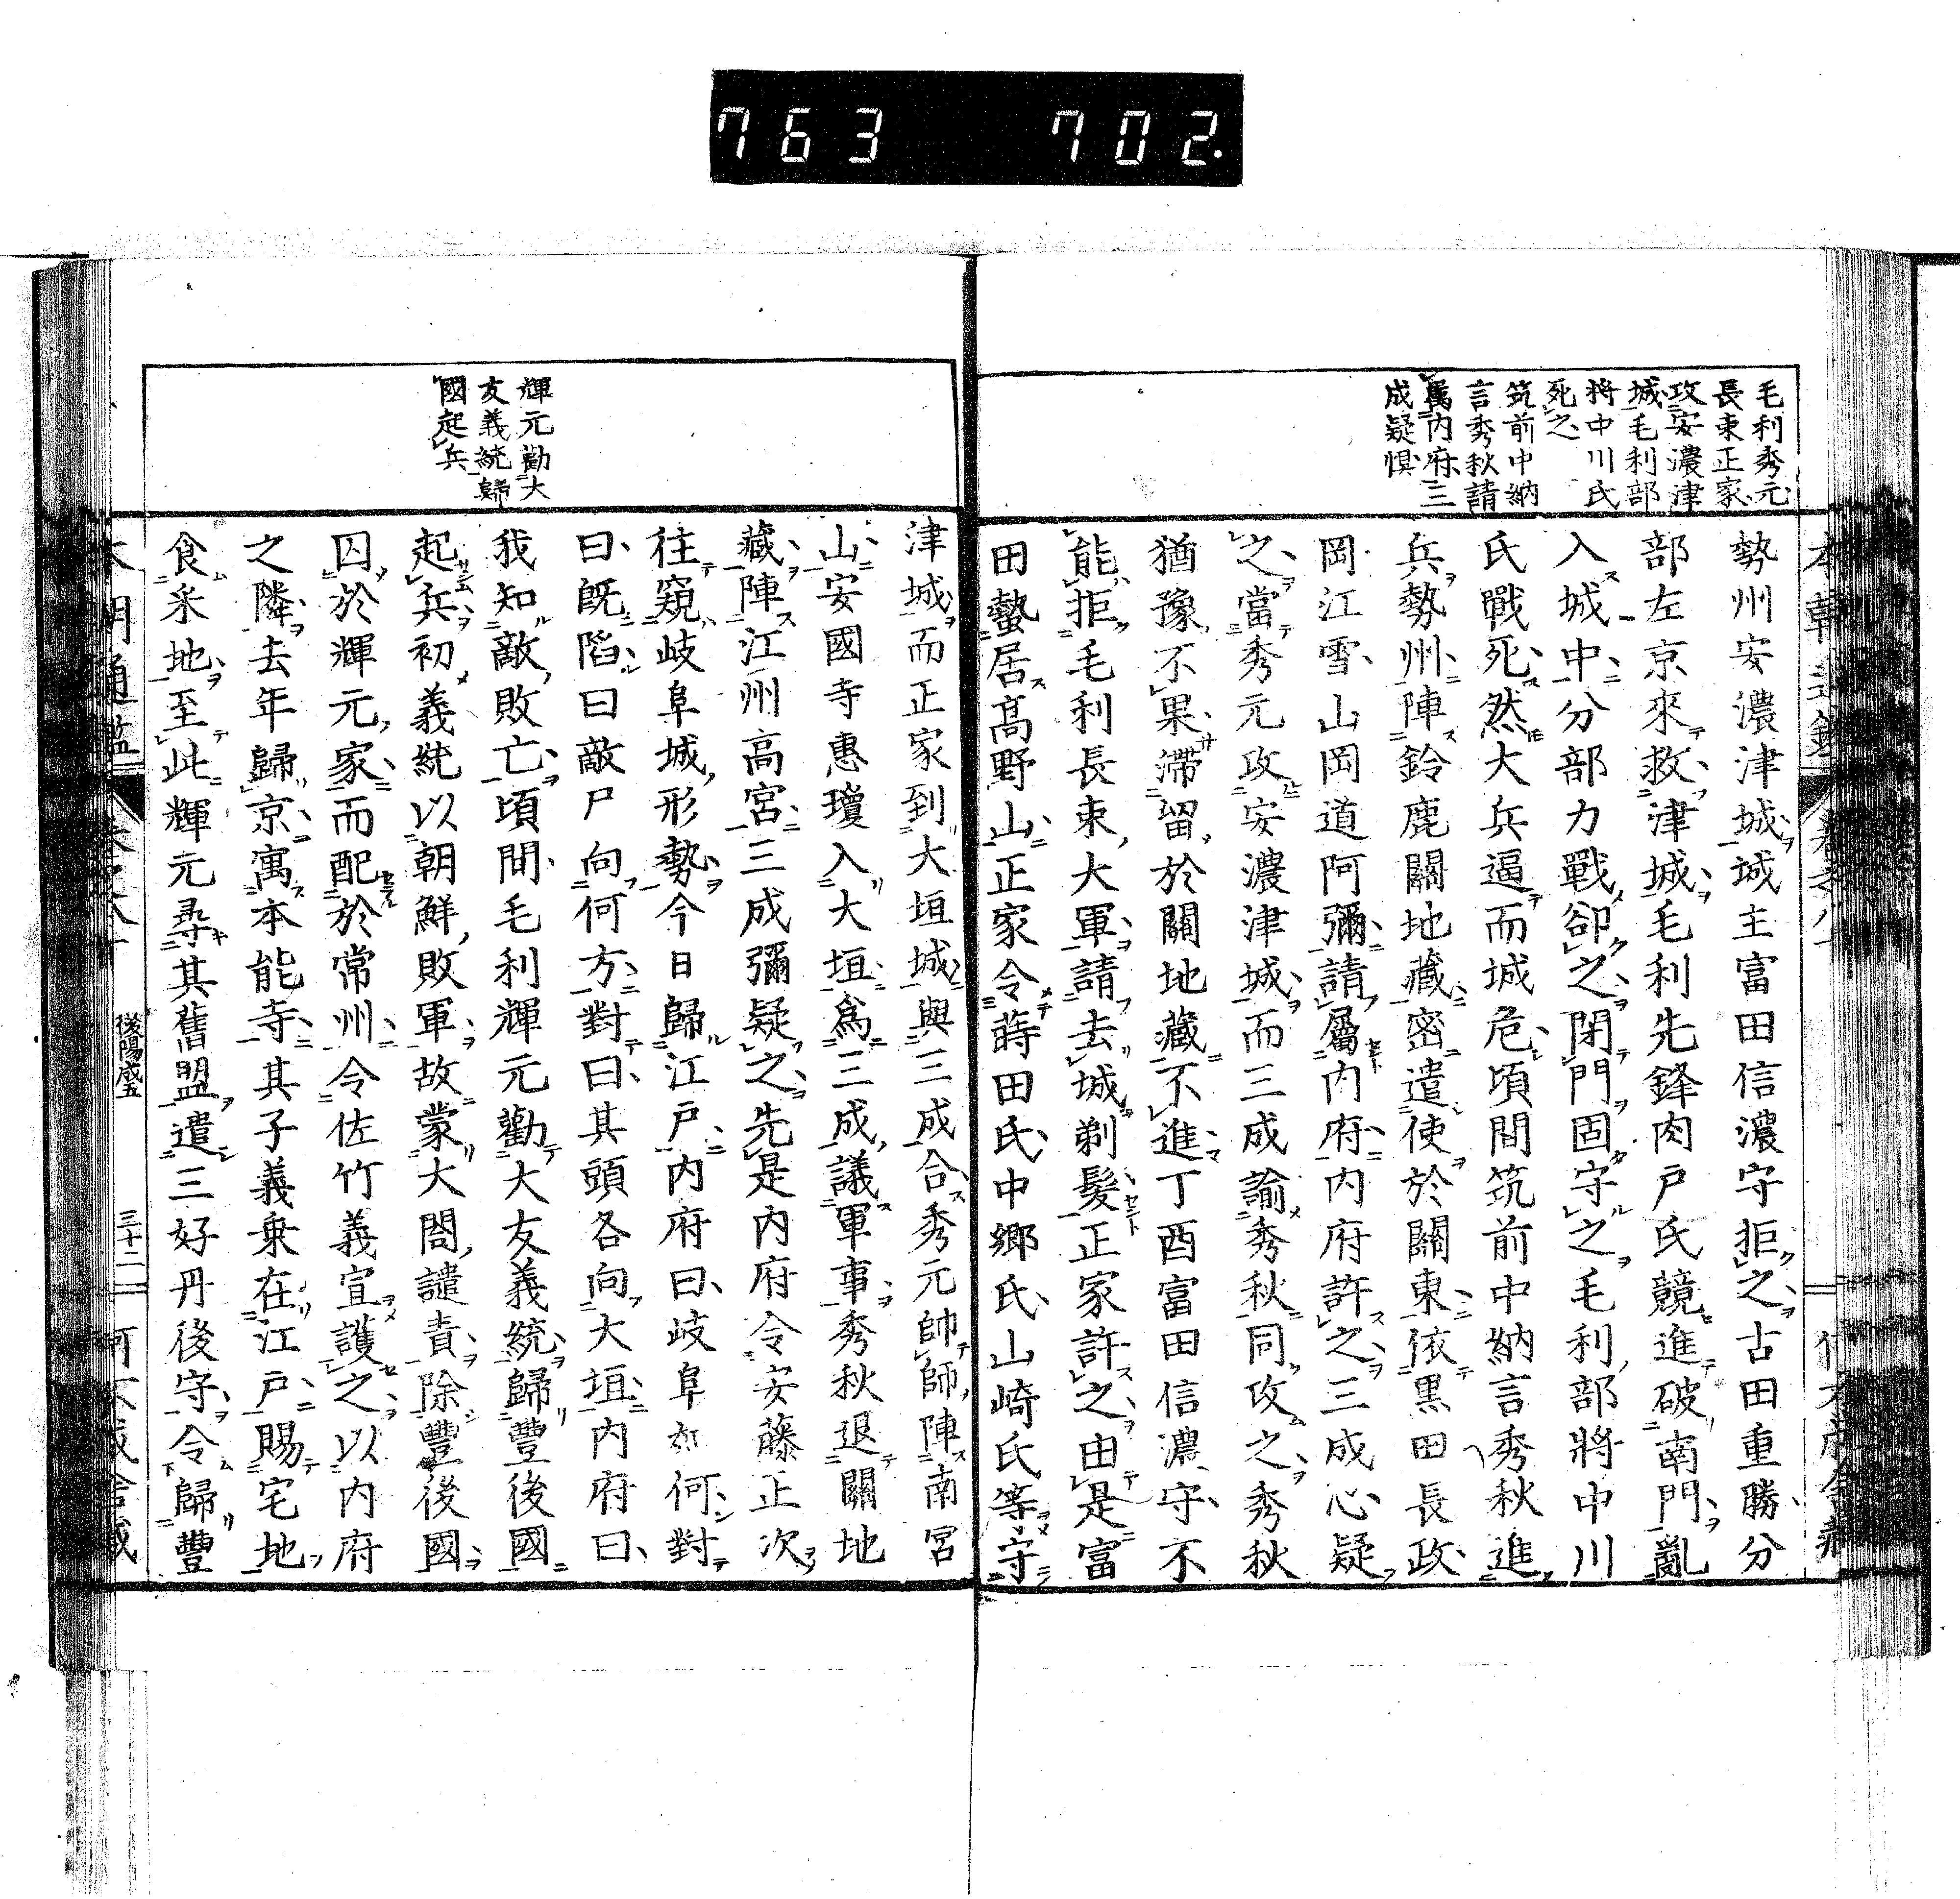 763 702.
毛利秀元
長束正家
攻安濃津
城毛利部
将中川氏
死之
筑前中納
言秀秋請
属内府三
成疑惧
勢州安濃津城城主富田信濃守拒之古田重勝分
部左京來救津城毛利先鋒肉戸氏競進破南門亂
入城中分部力戰卻之閉門固守之毛利部將中川
氏戰死然大兵逼而城危頃間筑前中納言秀秋進
兵勢州陣鈴鹿關地藏密遣使於關東依黒田長政
岡江雪山岡道阿彌請屬内府内府許之三成心疑
之當秀元攻安濃津城而三成諭秀秋同攻之秀秋
猶豫不果滯留於關地藏不進丁酉富田信濃守不
能拒毛利長束大軍請去城剃髮正家許之由是富
田蟄居髙野山正家令蒔田氏中郷氏山崎氏等守
輝元勸大
友義統歸
國起兵
津城而正家到大垣城與三成合秀元帥師陣南宮
山安國寺惠瓊入大垣爲三成議軍事秀秋退關地
藏陣江州高宮三成彌疑之先是内府令安藤正次
往窺岐阜城形勢今日歸江戸内府曰岐阜如何對
曰既陷曰敵尸向何方對曰其頭各向大垣内府曰
我知敵敗亡頃間毛利輝元勸大友義統歸豐後國
起兵初義統以朝鮮敗軍故蒙大閤譴責除豐後國
囚於輝元家而配於常州令佐竹義宣護之以内府
之隣去年歸京寓本能寺其子義乗在江戸賜宅地
食采地至此輝元尋其舊盟遣三好丹後守令歸豐
後陽成五
三十二